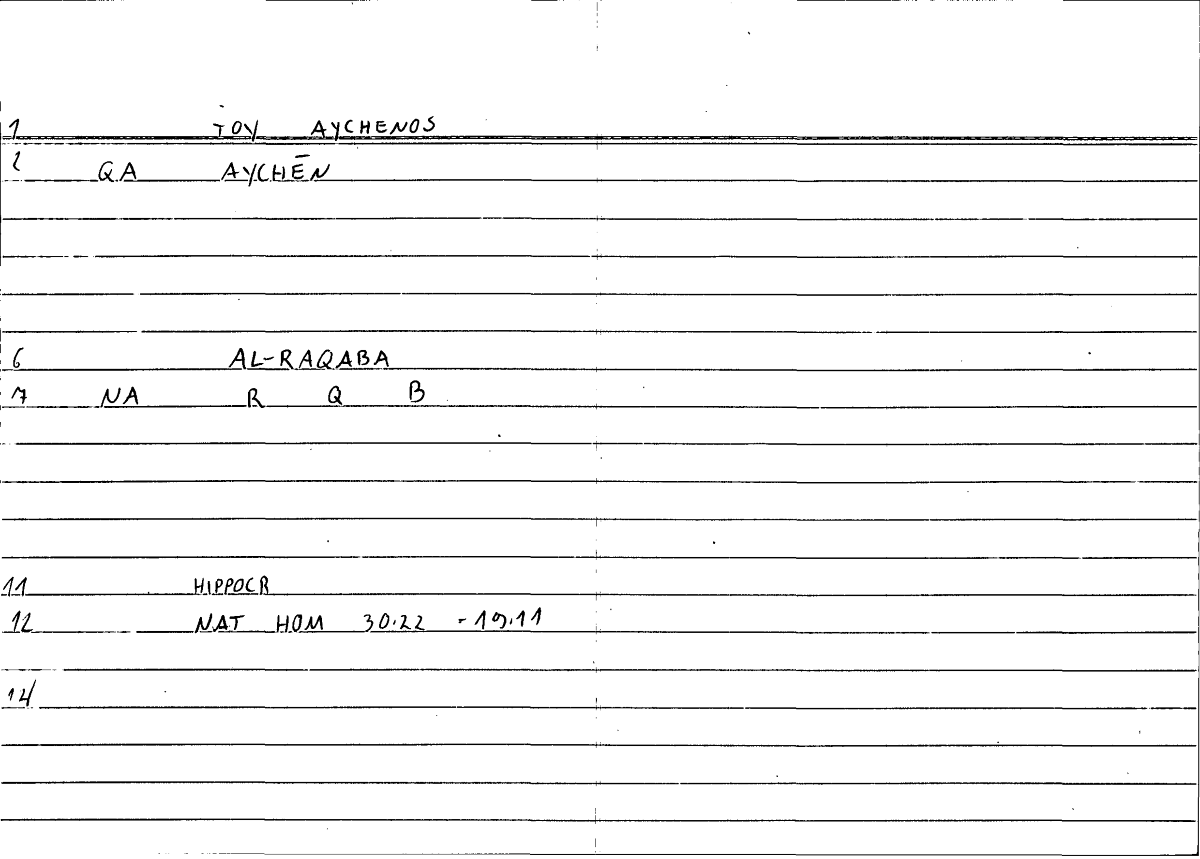 1 TOY AYCHENOS
2 QA AYCHĒN
6 AL-RAQABA
7 NA R Q B
11 HIPPOCR
12 NAT HOM 30.22 - 19.11
14